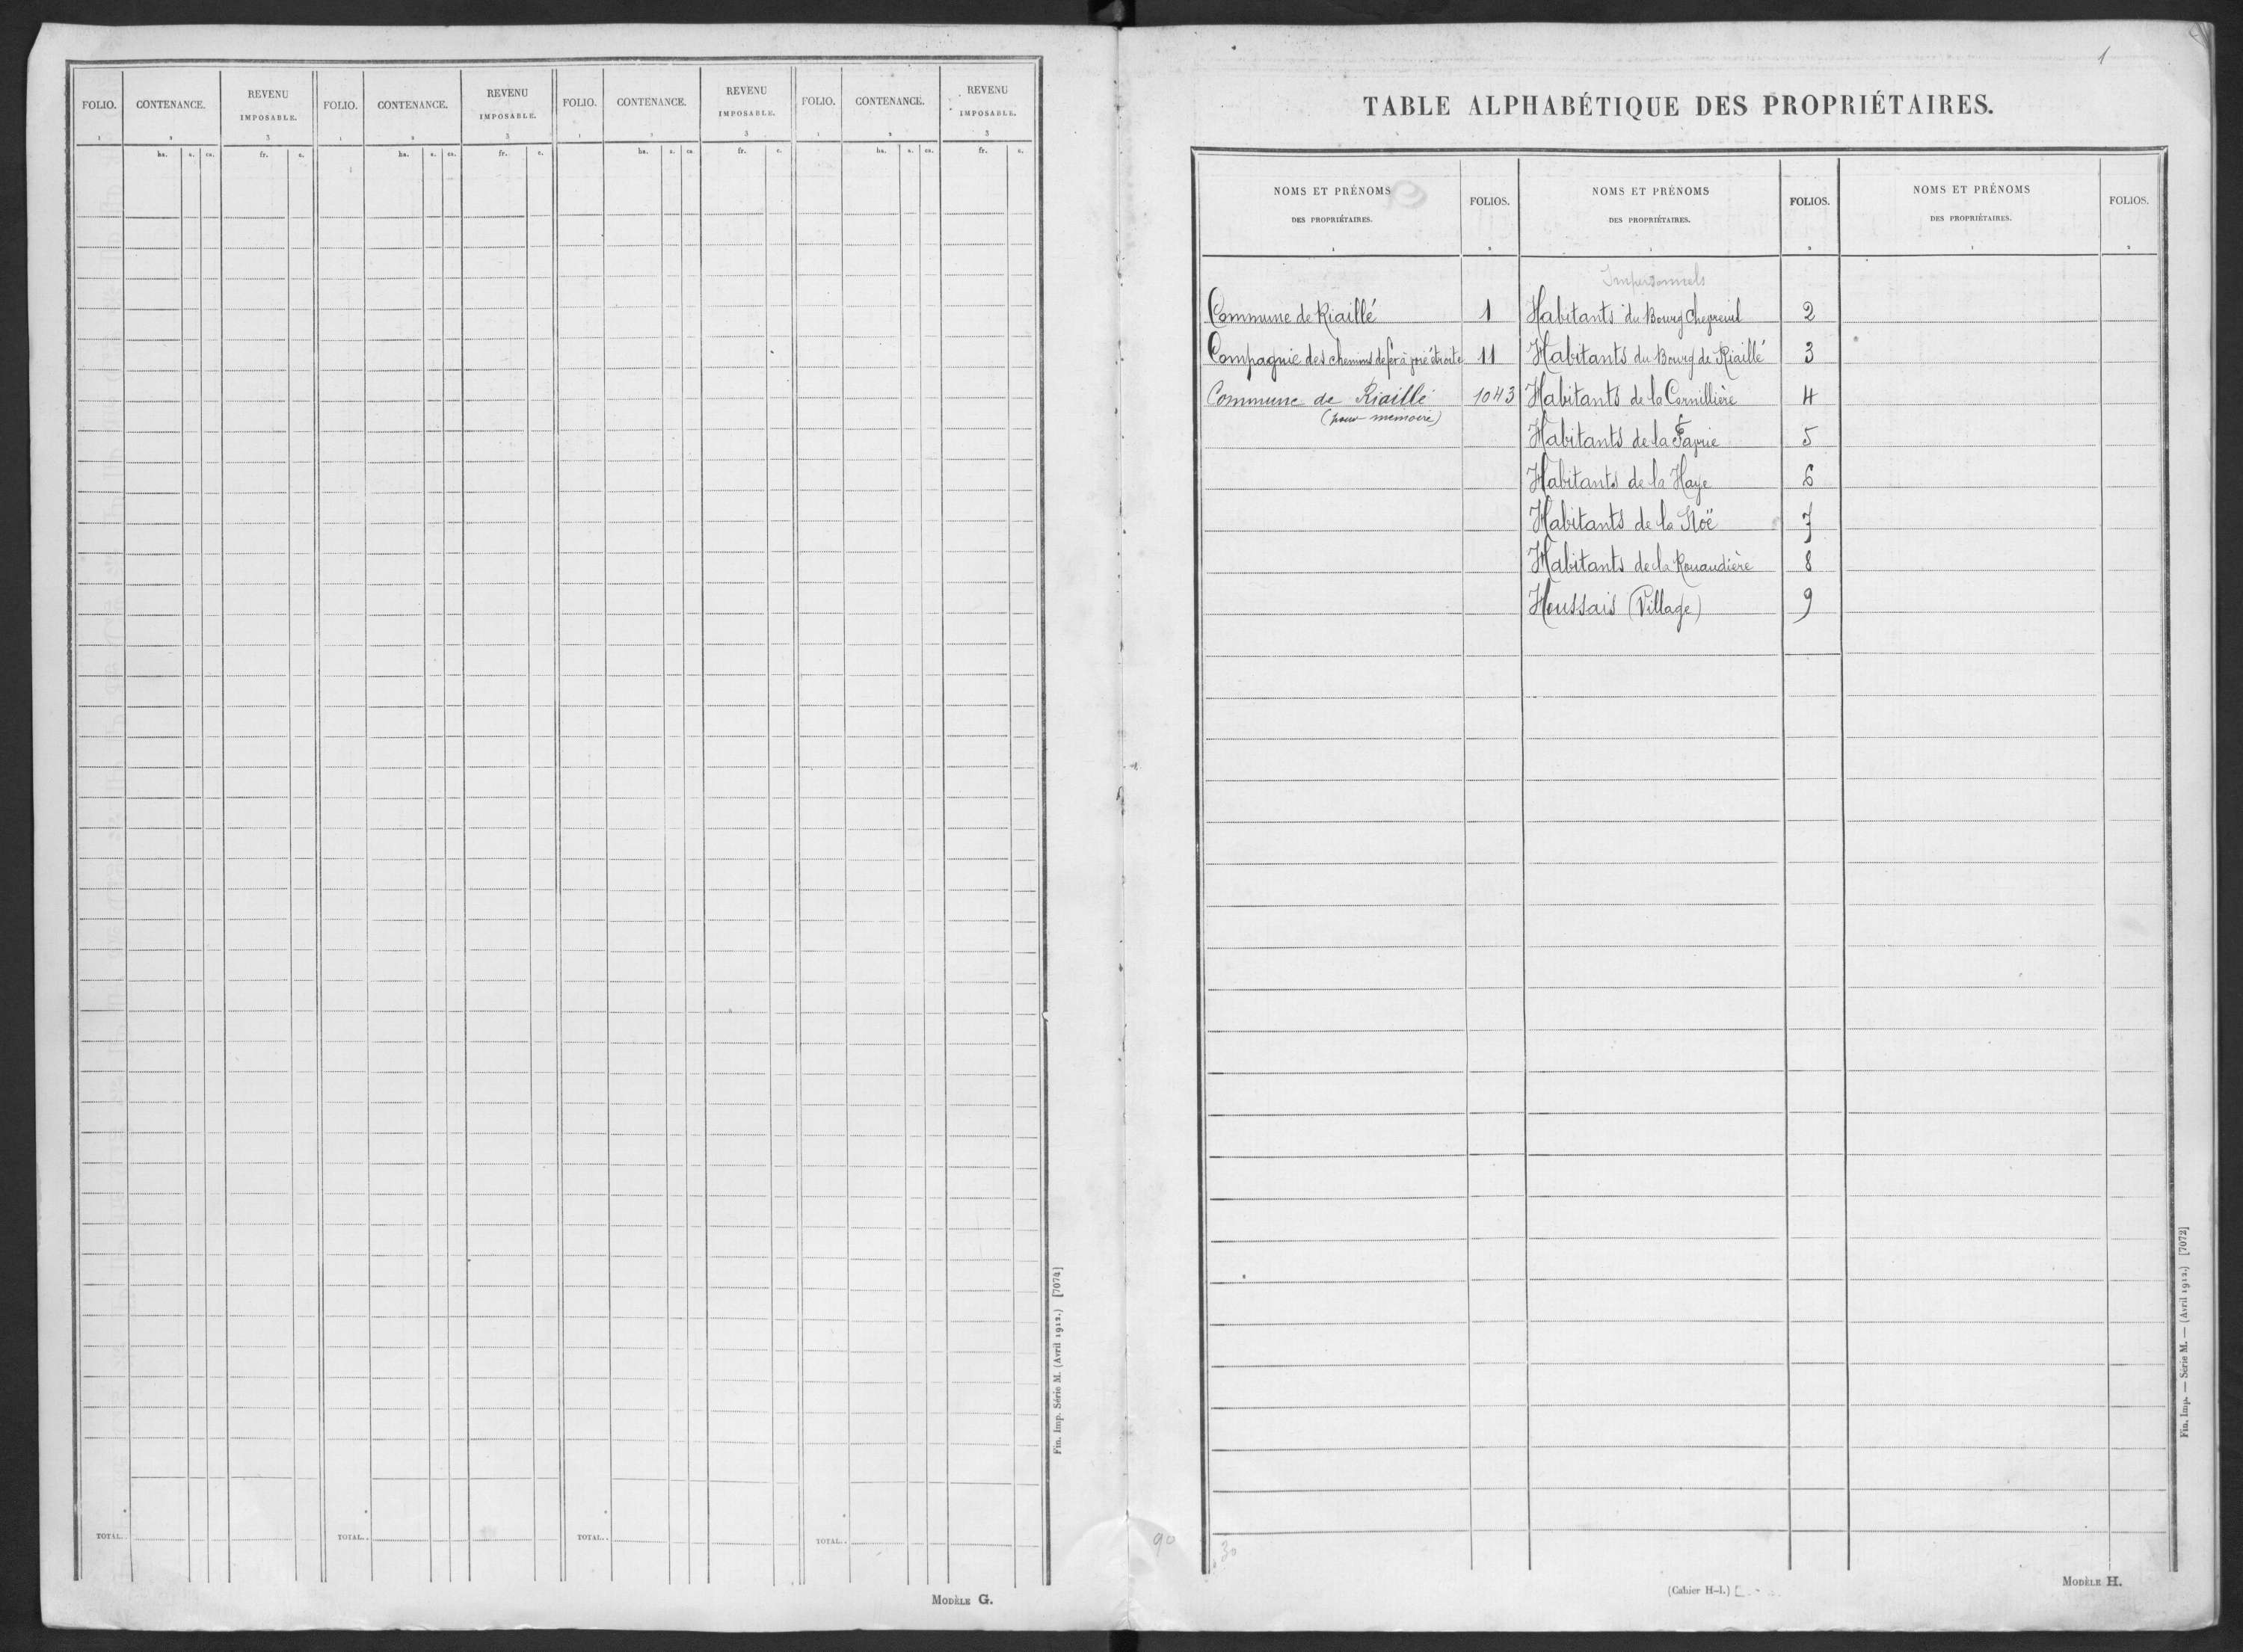 FOLIO. CONTENANCE. REVENU IMPOSABLE. FOLIO. CONTENANCE. REVENU IMPOSABLE. FOLIO. CONTENANCE. REVENU IMPOSABLE. FOLIO. CONTENANCE. REVENU IMPOSABLE.
1 2 3 1 2 3 1 2 3 1 2 3
ha. a. ca. fr. c. ha. a. ca. fr. c. ha. a. ca. fr. c. ha. a. ca. fr. c.
TOTAL.. TOTAL.. TOTAL.. TOTAL..
Fin. Imp. Série M. (Avril 1912.) [7074]
MODÈLE G.
1
TABLE ALPHABÉTIQUE DES PROPRIÉTAIRES.
NOMS ET PRÉNOMS DES PROPRIÉTAIRES. FOLIOS. NOMS ET PRÉNOMS DES PROPRIÉTAIRES. FOLIOS. NOMS ET PRÉNOMS DES PROPRIÉTAIRES. FOLIOS.
1 2 1 2 1 2
Impersonnels
Commune de Riaillé 1 Habitants du Bourg Chevreuil 2
Compagnie des chemins de fer à voie étroite 11 Habitants du Bourg de Riaillé 3
Commune de Riaillé 1043 Habitants de la Cornillière 4
(pour memoire)
Habitants de la 5
Habitants de la Haye 6
Habitants de la Noë 7
Habitants de la Rouaudière 8
Houssais (Village) 9
90
30
(Cahier H-I.)
MODÈLE H.
Fin. Imp. — Série M. — (Avril 1912.) [7072]